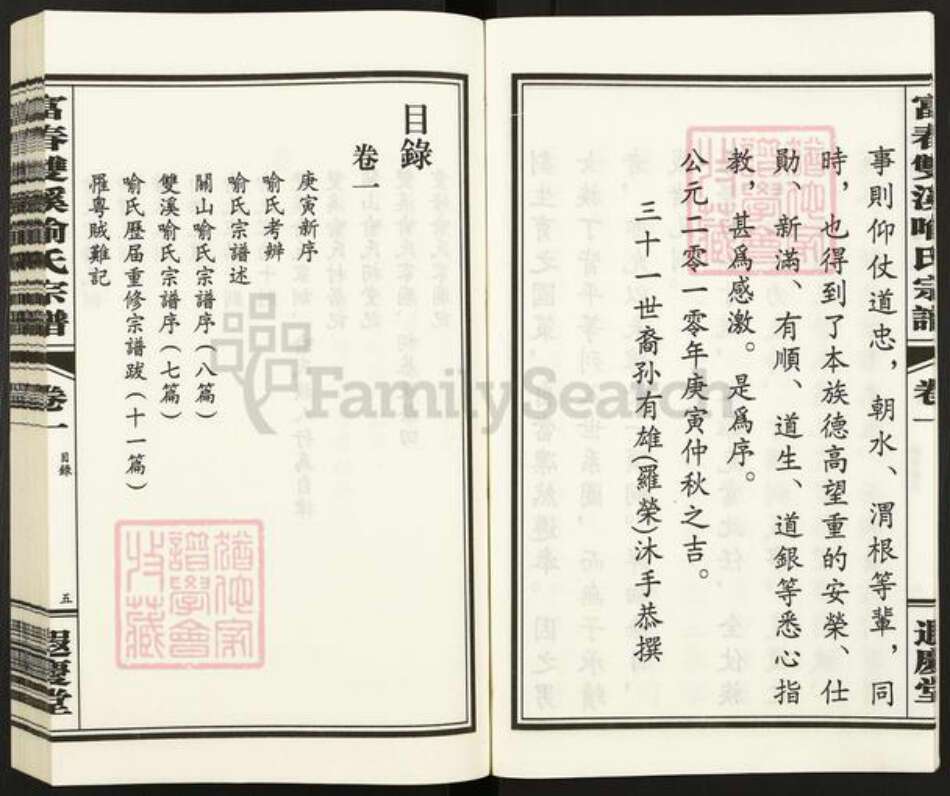 富春雙溪喻氏宗譜
卷一
遐慶堂
事則仰仗道忠，朝水、渭根等輩，同
時，也得到了本族德高望重的安榮、仕
勛、新滿、有順、道生、道銀等悉心指
教，甚爲感激。是爲序。
公元二零一零年庚寅仲秋之吉。
三十一世裔孫有雄(羅榮)沐手恭撰
目錄
卷一
庚寅新序
喻氏考辦
喻氏宗譜述
關山喻氏宗譜序(八篇)
雙溪喻氏宗譜序(七篇)
喻氏歷届重修宗譜跋(十一篇)
罹粵賊難記
富春雙溪喻氏宗譜
卷一
目錄
五
遐慶堂
譜學會
收藏
譜學會
收藏
FamilySearch